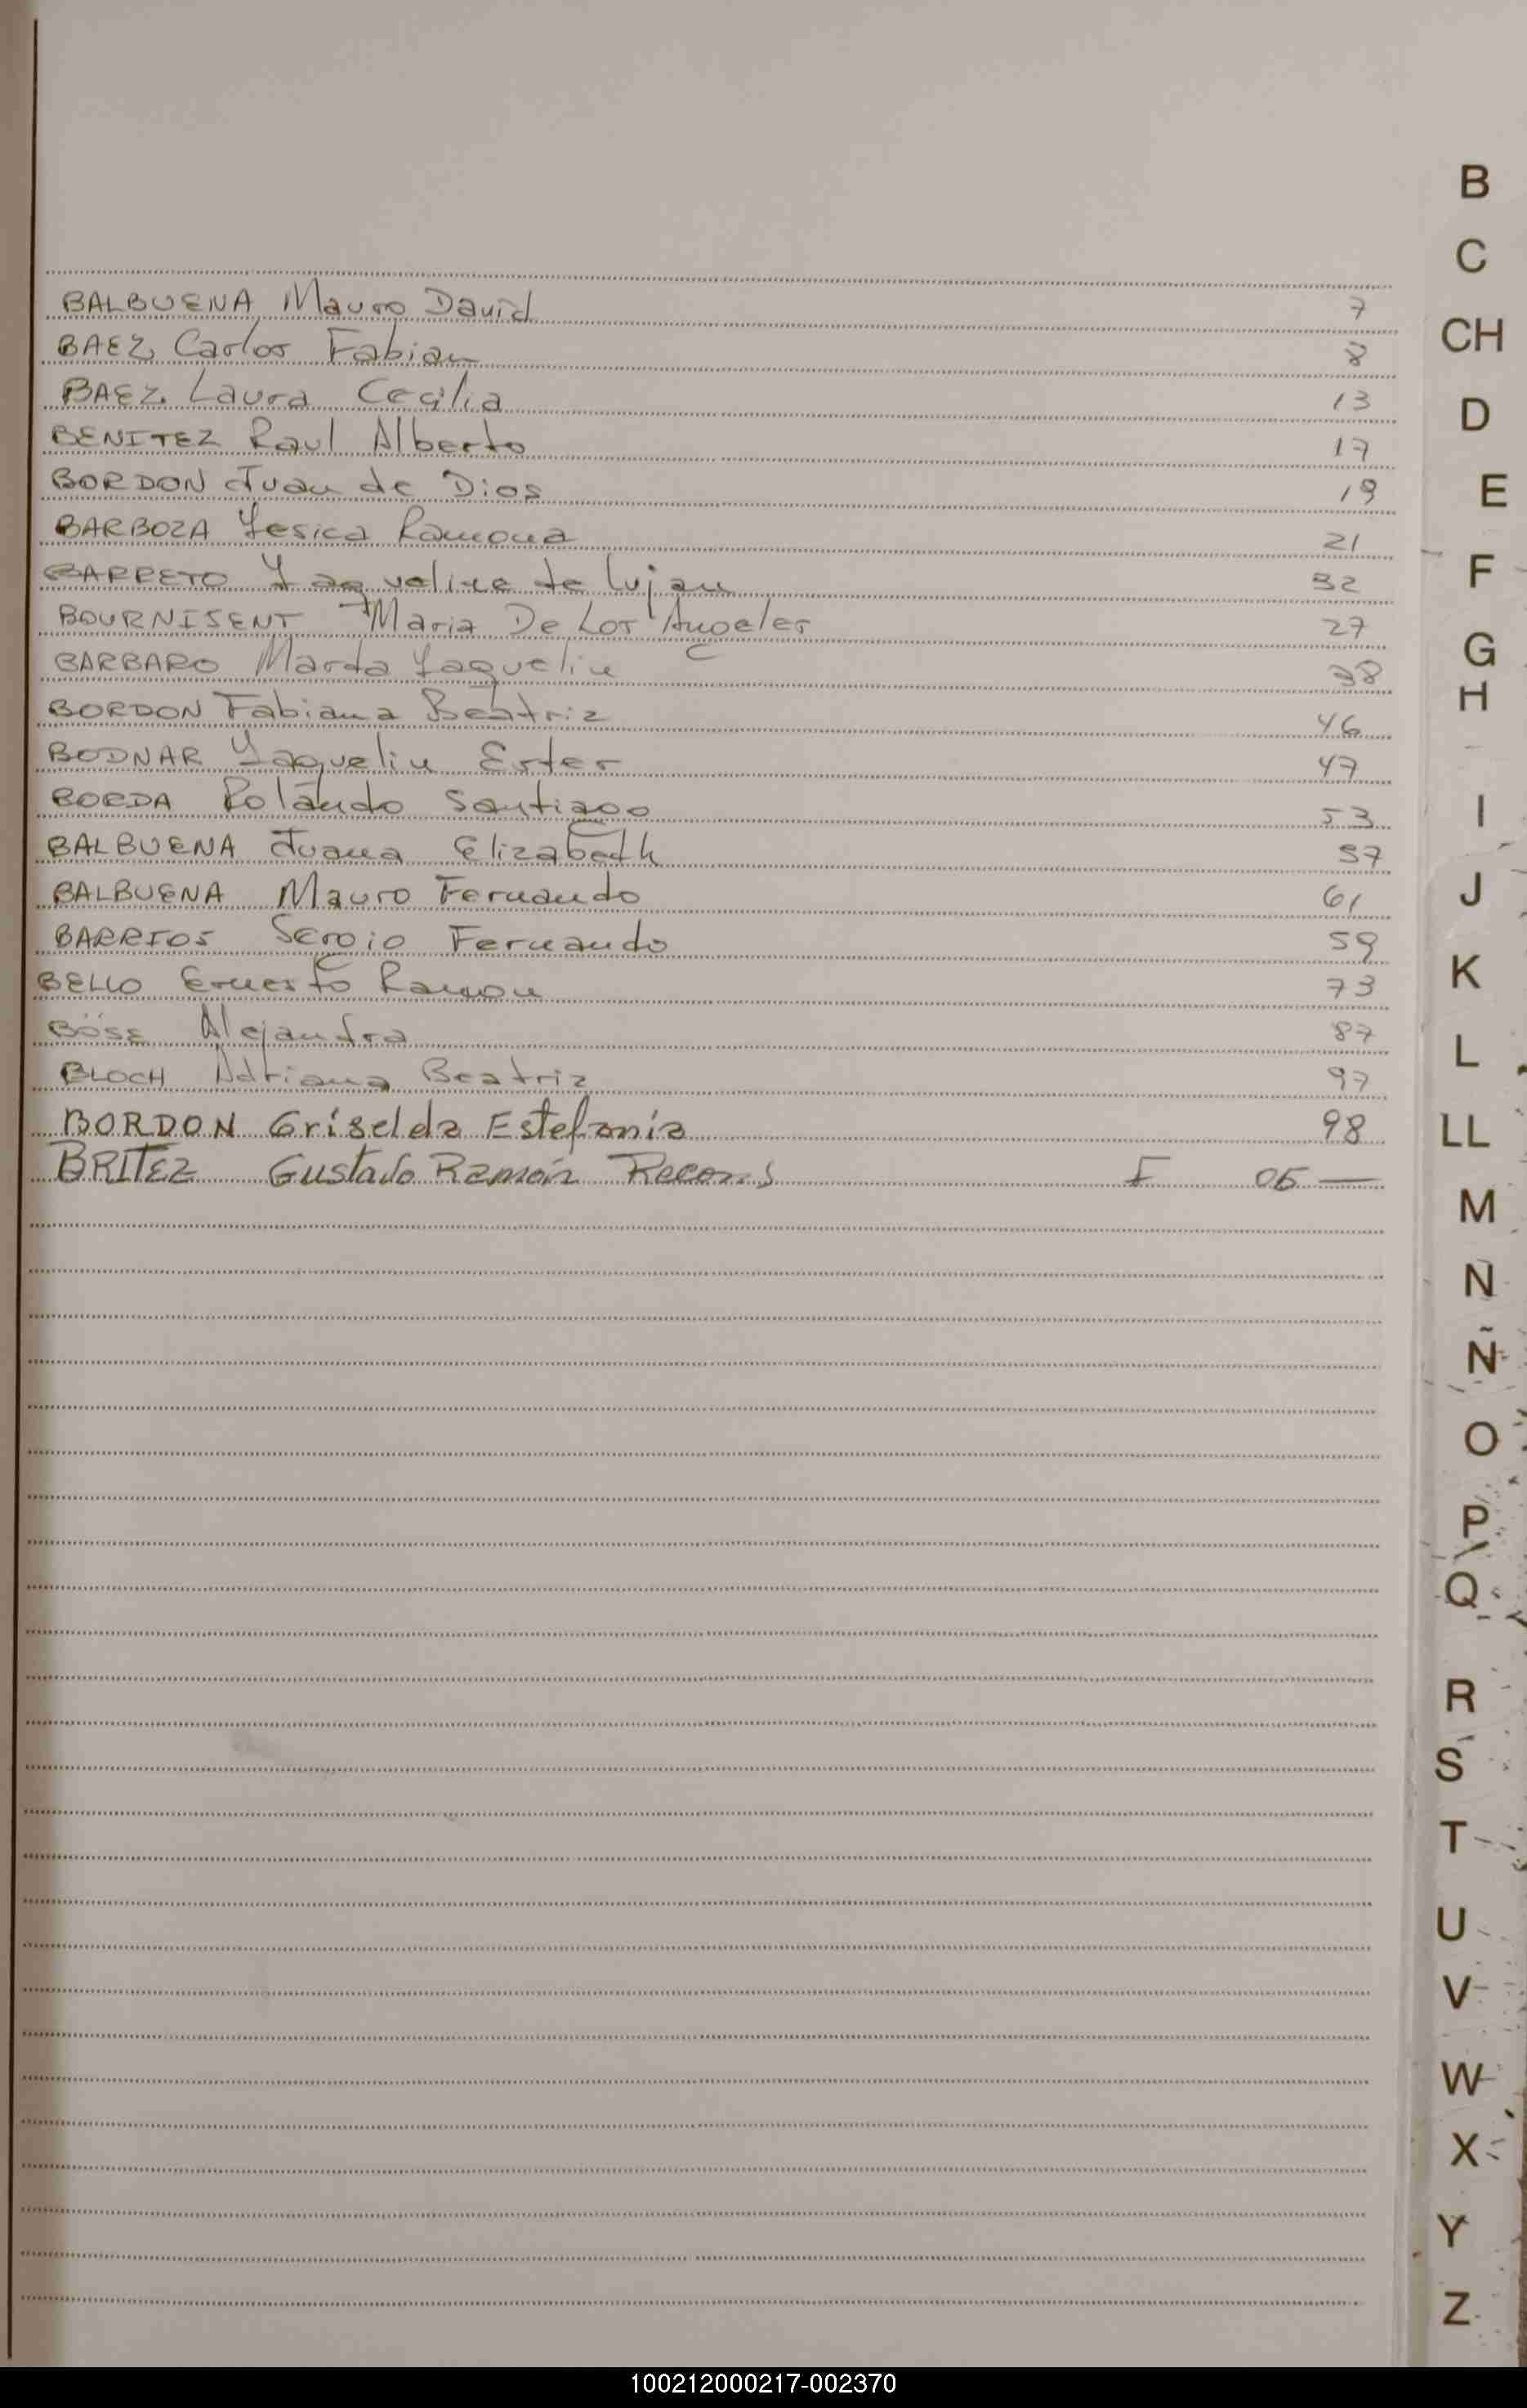 BALBUENA Mauro David 7
BAEZ Carlos Fabian 8
BAEZ Laura Cecilia 13
BENITEZ Raul Alberto 17
BORDON Juan de Dios 19
BARBOZA Yesica Ramona 21
BARRETO Yaqueline de Lujan 32
BOURNISENT Maria De Los Angeles 27
BARBARO Marta Yaquelin 38
BORDON Fabiana Beatriz 46
BODNAR Yaquelin Ester 47
BORDA Rolando Santiago 53
BALBUENA Juana Elizabeth 57
BALBUENA Mauro Fernando 61
BARRIOS Sergio Fernando 59
BELLO Ernesto Ramon 73
BÖSE Alejandra 87
BLOCH Adriana Beatriz 97
BORDON Griselda Estefania 98
BRITEZ Gustavo Ramón F 05 —
B
C
CH
D
E
F
G
H
I
J
K
L
LL
M
N
Ñ
O
P
Q
R
S
T
U
V
W
X
Y
Z
100212000217-002370